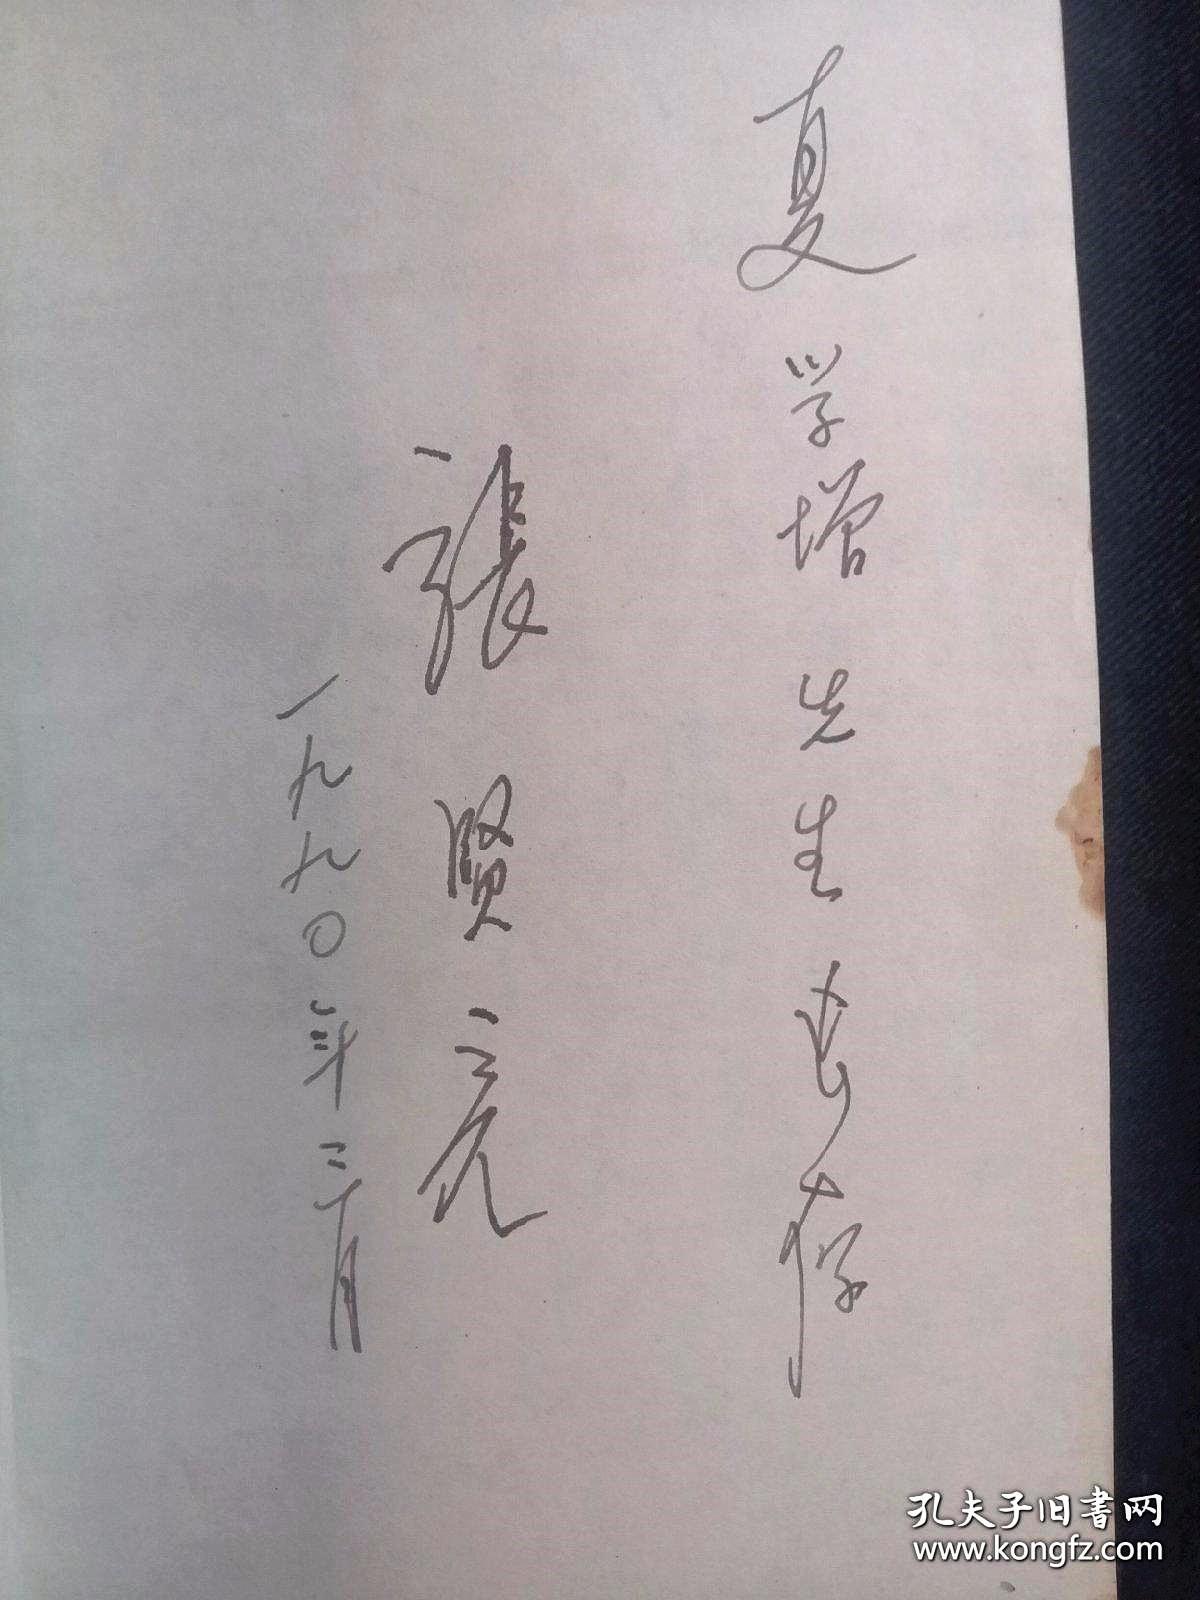 夏学增先生惠存
張賢亮
一九九〇年二月
孔夫子旧書网
www.kongfz.com